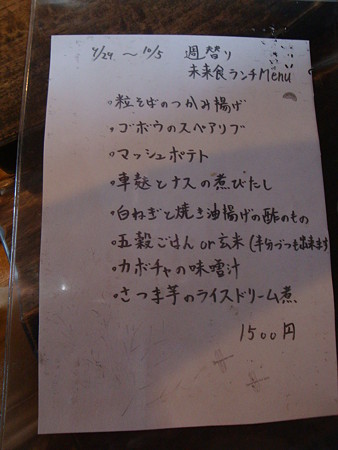 9/29 〜 10/5 週替り
未来食ランチMenu
・粒そばのつかみ揚げ
・ゴボウのスペアリブ
・マッシュポテト
・車麩とナスの煮びたし
・白ねぎと焼き油揚げの酢のもの
・五穀ごはん or 玄米(半分づつも出来ます)
・カボチャの味噌汁
・さつま芋のライスドリーム煮
1500円